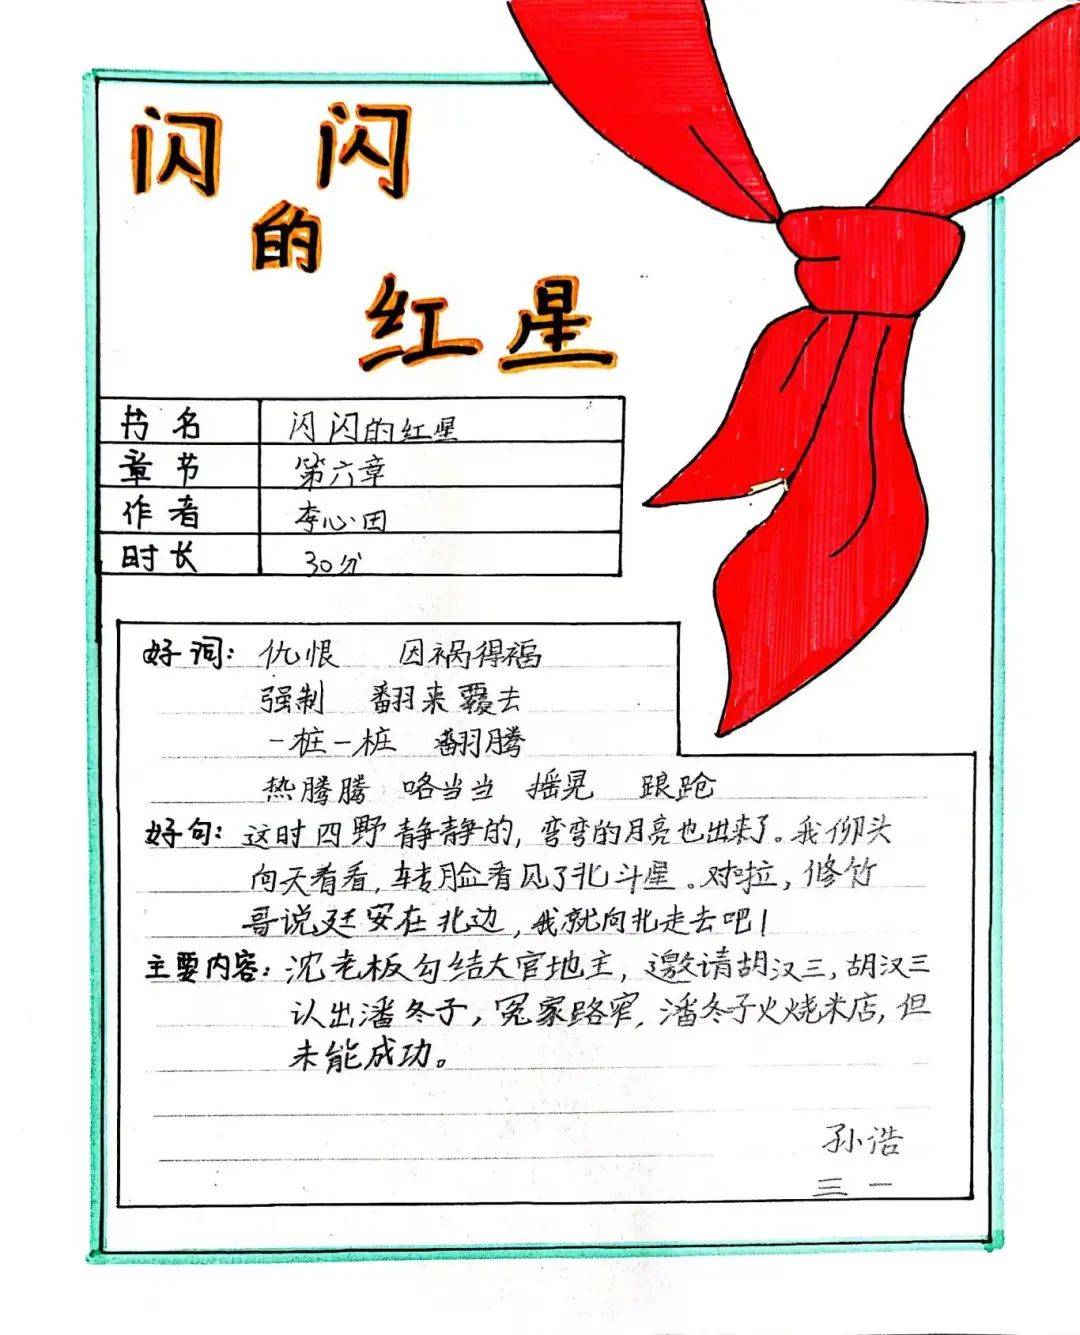 闪 闪
的
红星
书名 闪闪的红星
章节 第六章
作者 李心田
时长 30分
好词：仇恨 因祸得福
强制 翻来覆去
一桩一桩 翻腾
热腾腾 咯当当 摇晃 踉跄
好句：这时四野静静的，弯弯的月亮也出来了。我仰头
向天看看，转脸看见了北斗星。对啦，修竹
哥说延安在北边，我就向北走去吧！
主要内容：沈老板勾结大官地主，邀请胡汉三，胡汉三
认出潘冬子，冤家路窄，潘冬子火烧米店，但
未能成功。
孙浩
三 一